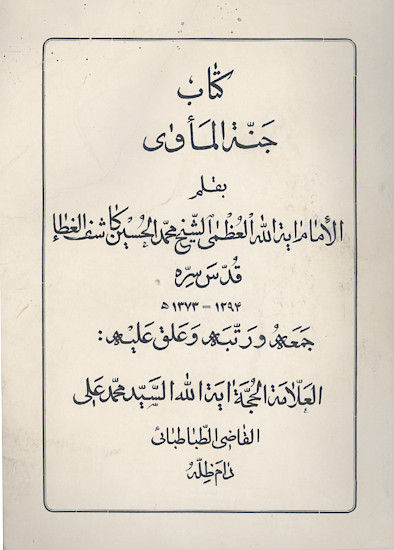 كتاب
جنّة المأوى
بقلم
الإمام اية الله العظمى الشيخ محمد الحسين كاشف الغطاء
قدّس سره
۱۲۹۴ – ۱۳۷۳ ه
جمعه ورتبه وعلق عليه :
العلّامة الحجة اية الله السيّد محمد علي
القاضي الطباطبائي
دام ظله